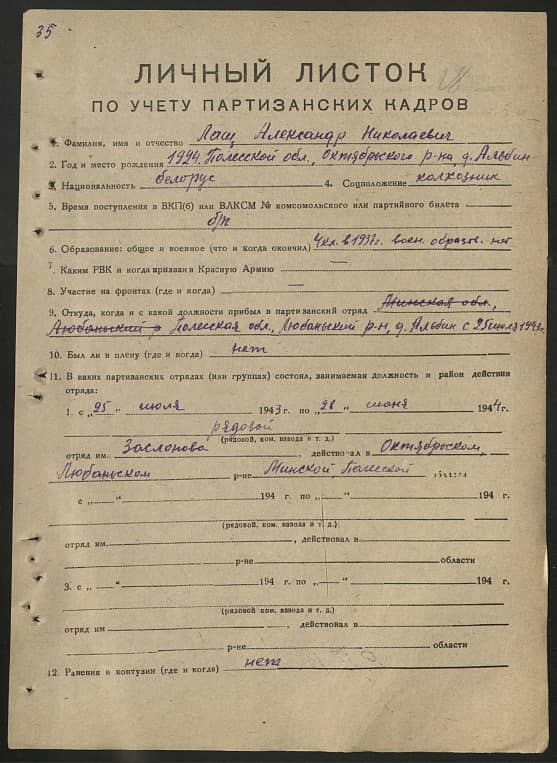 35
ЛИЧНЫЙ ЛИСТОК
ПО УЧЕТУ ПАРТИЗАНСКИХ КАДРОВ
1. Фамилия, имя и отчество Лащ Александр Николаевич
2. Год и место рождения 1924. Полесской обл., Октябрьского р-на, д. Альбин
3. Национальность белорус 4. Соцположение колхозник
5. Время поступления в ВКП(б) или ВЛКСМ № комсомольского или партийного билета
б/п
6. Образование: общее и военное (что и когда окончил) 4 кл. в 1937 г. воен. образов. нет
7. Каким РВК и когда призван в Красную Армию —
8. Участие на фронтах (где и когда) —
9. Откуда, когда и с какой должности прибыл в партизанский отряд Минская обл.,
Любаньский р Полесская обл., Любаньский р-н, д. Альбин с 25 июля 1943г.
10. Был ли в плену (где и когда) нет
11. В каких партизанских отрядах (или группах) состоял, занимаемая должность и район действия
отряда:
1. с „25“ июля 1943 г. по „28“ июня 1944 г.
рядовой
(рядовой, ком. взвода и т. д.)
отряд им. Заслонова, действовал в Октябрьском,
Любаньском р-не Минской, Полесской
с „ “ 194 г. по „ “ 194 г.
(рядовой, ком. взвода и т. д.)
отряд им. , действовал в
р-не области
3. с „ “ 194 г. по „ “ 194 г.
(рядовой, ком. взвода и т. д.)
отряд им , действовал в
р-не области
12. Ранения и контузии (где и когда) нет